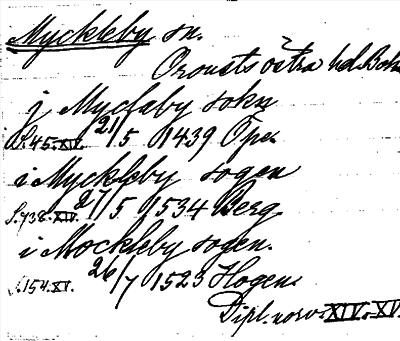 Myckleby sn.
Orousts östra hd. Boh.
j Mycleby sokn
S. 45. XIV. 21/5 1439 Oper
i Myckleby sogen
S. 738. XIV. 27/5 1534 Berg
i Mockleby sogen.
S. 154. XV. 26/7 1523 Hogen.
Dipl. norv. XIV. XV.